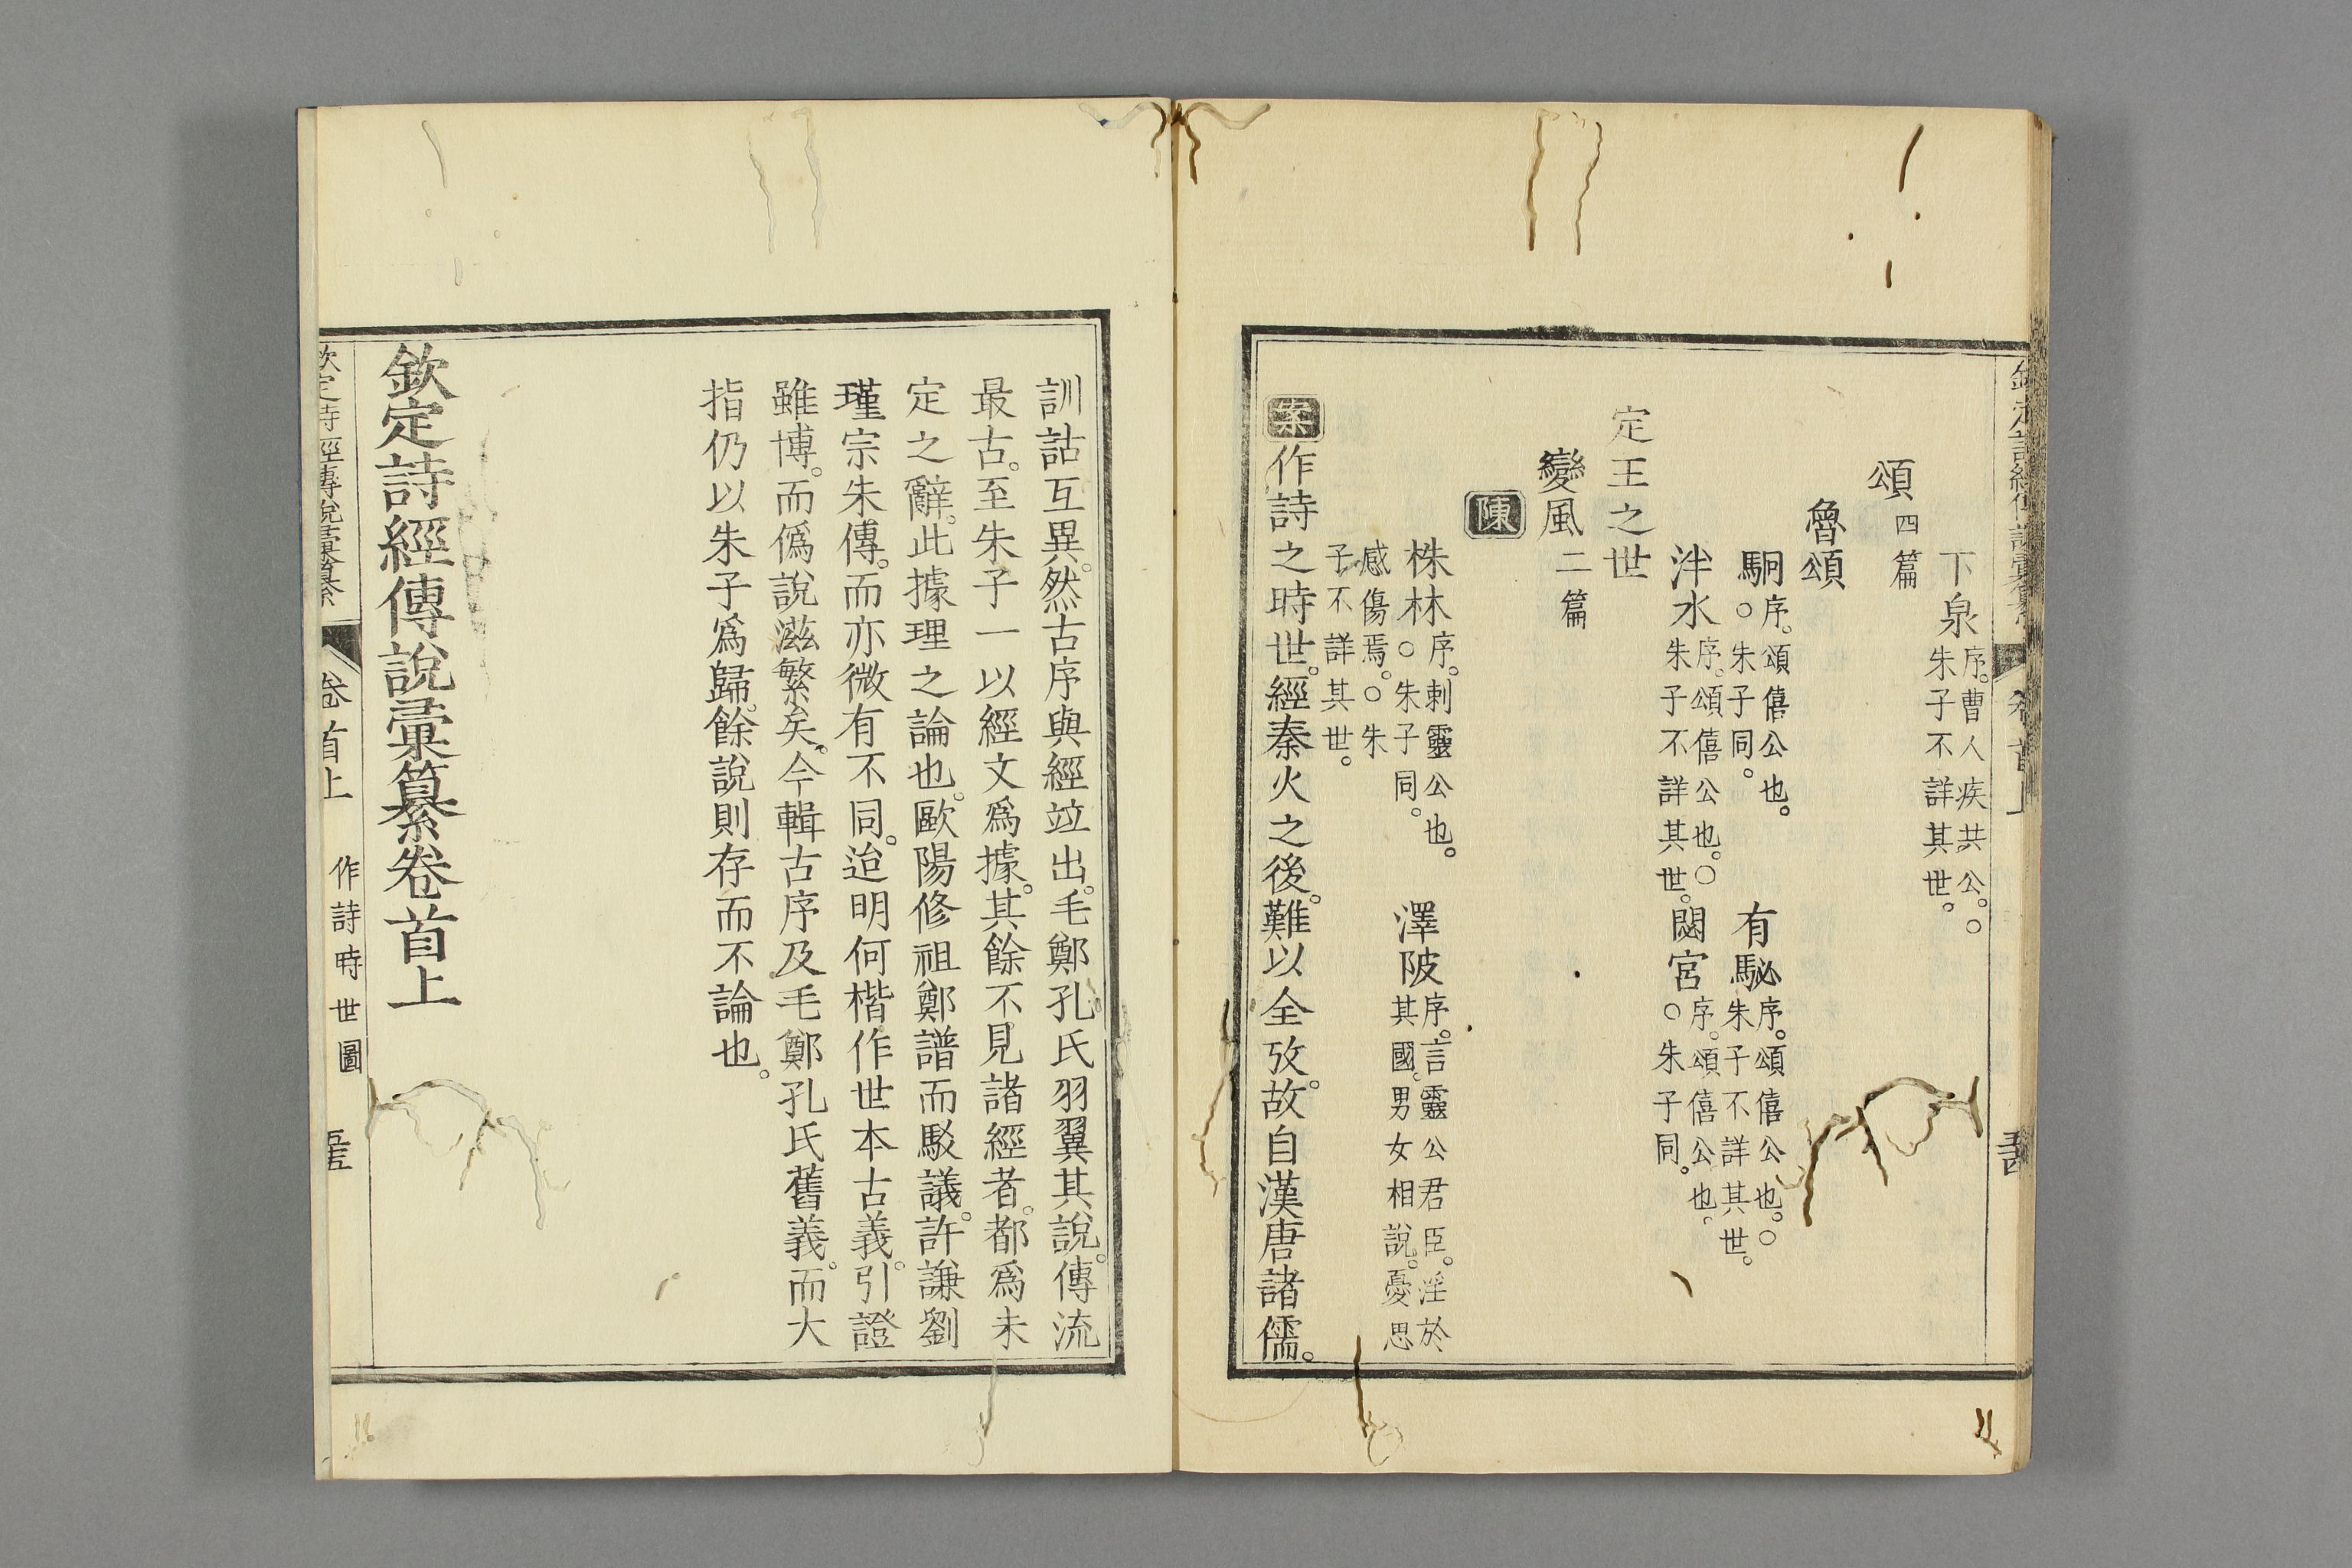 下泉序。曹人疾共公。○
朱子不詳其世。
頌四篇
魯頌
駉序。頌僖公也。
○朱子同。
有駜序。頌僖公也。○
朱子不詳其世。
泮水序。頌僖公也。○
朱子不詳其世。
閟宮序。頌僖公也。
○朱子同。
定王之世
變風二篇
陳
株林序。刺靈公也。
○朱子同。
澤陂序。言靈公君臣。淫於
其國。男女相說。憂思
感傷焉。○朱
子不詳其世。
案作詩之時世。經秦火之後。難以全攷。故自漢唐諸儒。
訓詁互異。然古序與經竝出。毛鄭孔氏羽翼其說。傳流
最古。至朱子一以經文爲據。其餘不見諸經者。都爲未
定之辭。此據理之論也。歐陽修祖鄭譜而駁議。許謙劉
瑾宗朱傳。而亦微有不同。迨明何楷作世本古義。引證
雖博。而僞說滋繁矣。今輯古序及毛鄭孔氏舊義。而大
指仍以朱子爲歸。餘說則存而不論也。
欽定詩經傳說彙纂卷首上
欽定詩經傳說彙纂 卷首上 作詩時世圖